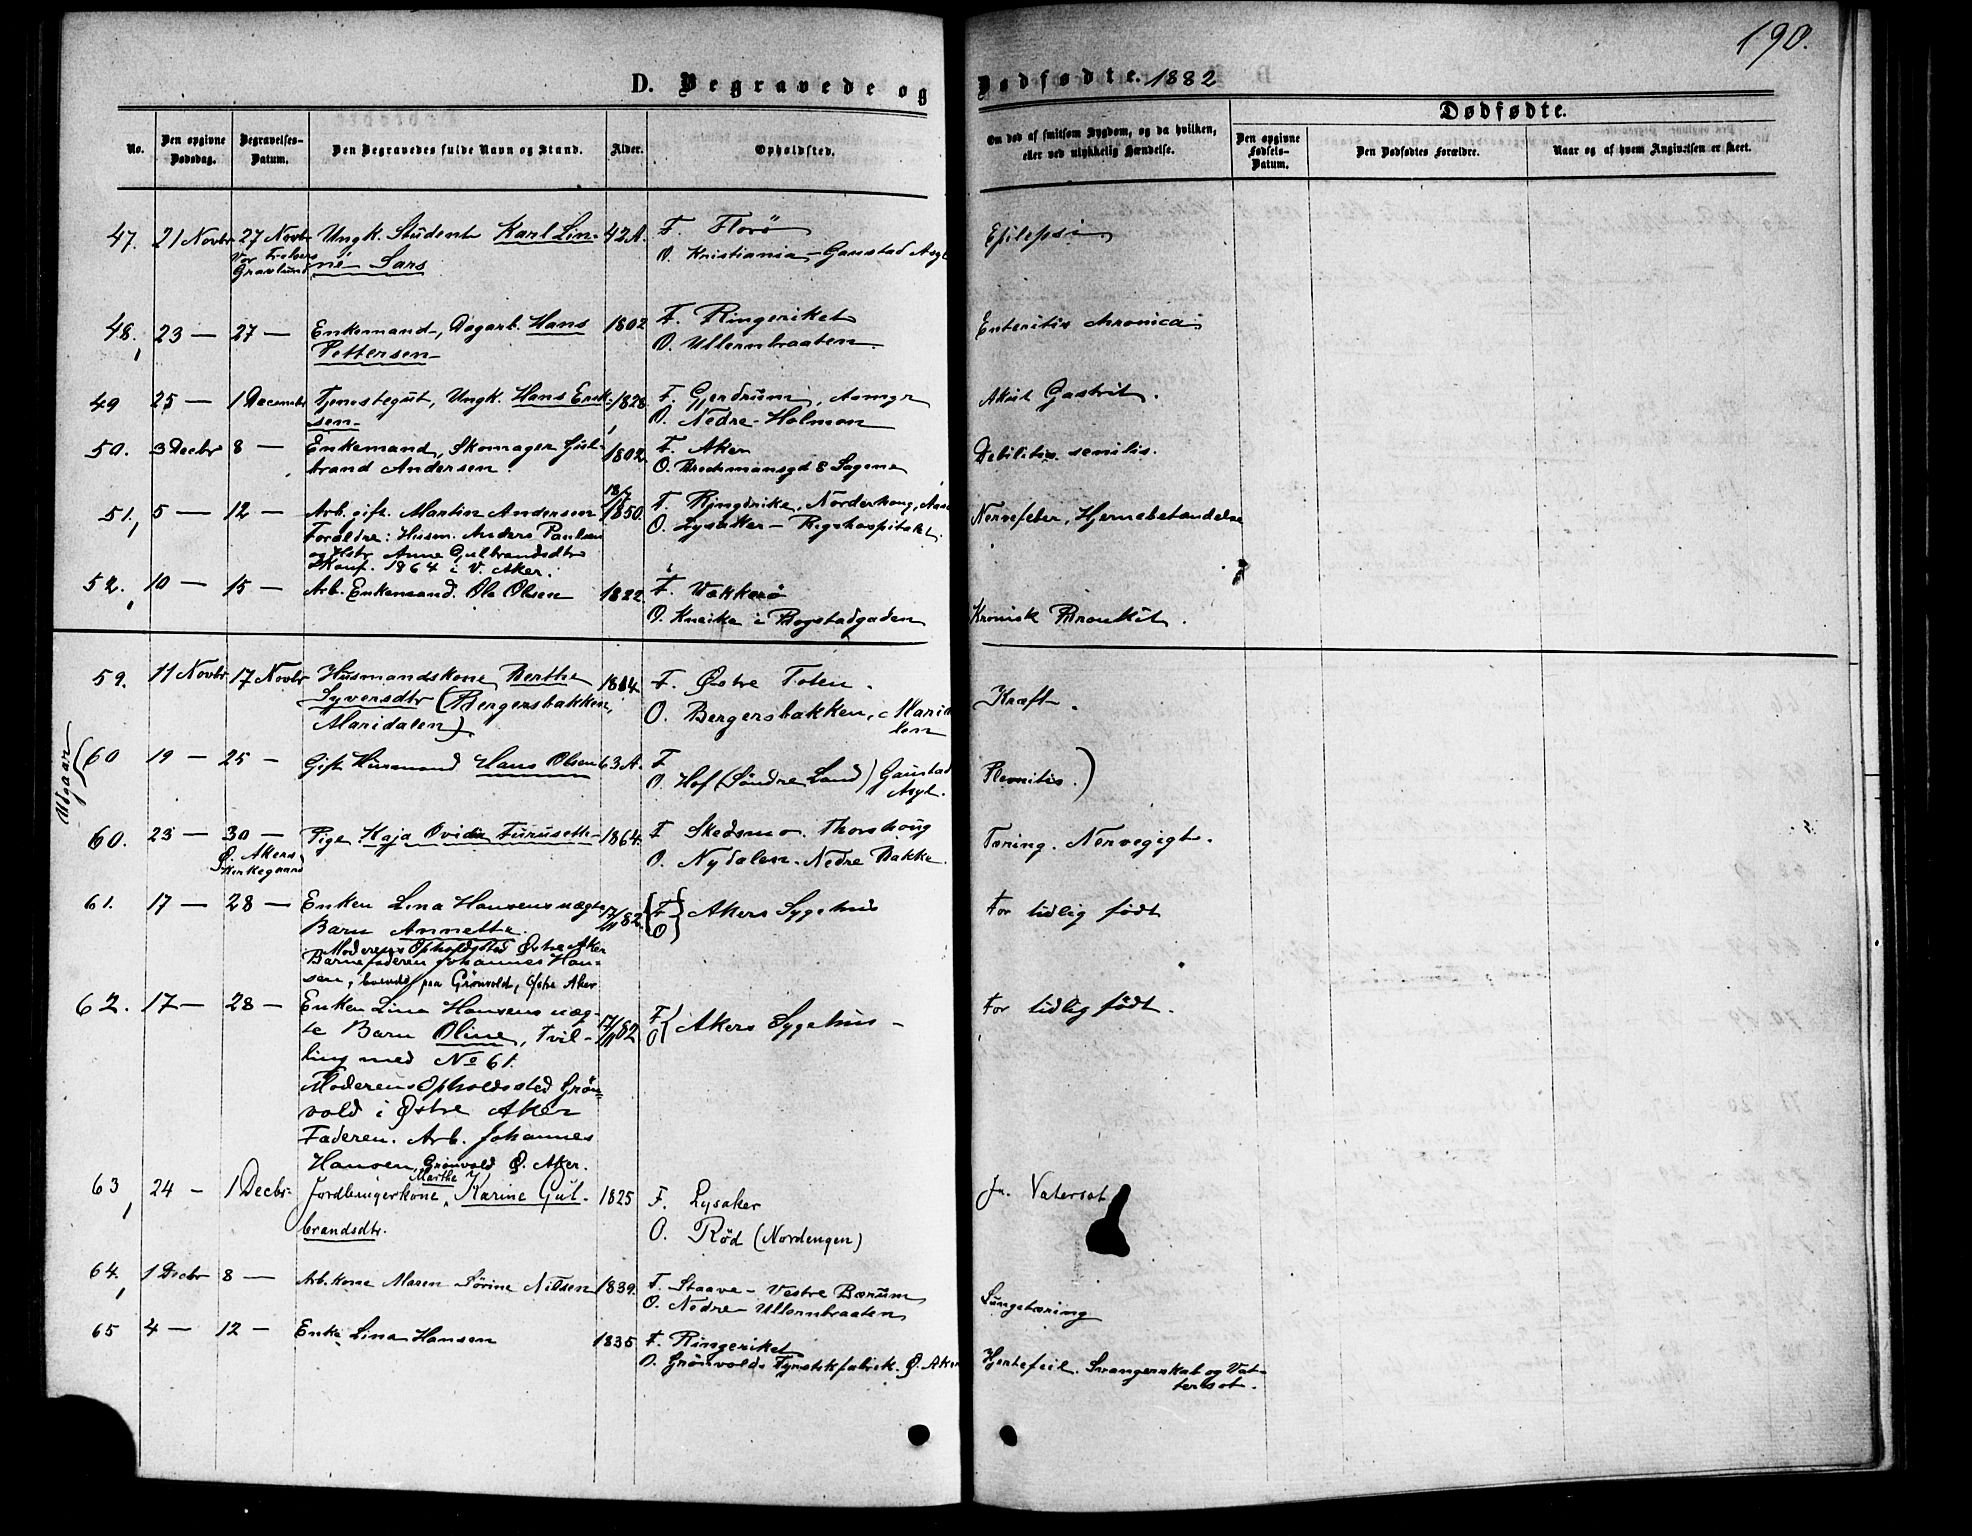 190.
D. Begravede og Dødfødte. 1882
Dødfødte.
No.
Den opgivne Dødsdag.
Begravelses-Datum.
Den Begravedes fulde Navn og Stand.
Alder.
Opholdssted.
Om død af smitsom Sygdom, og da hvilken, eller ved ulykkelig Hændelse.
Den opgivne Fødsels-Datum.
Den Dødfødtes Forældre.
Naar og af hvem Angivelsen er skeet.
47. 21 Novbr 27 Novbr Ungk. Student Karl Lin- 42 A. F. Florö Epilepsi
Vor Frelsers né Sars O. Kristiania - Gaustad Asyl
Gravlund
48. 23 — 27 — Enkemand, Dagarb. Hans 1802 F. Ringeriket Enteritis chronica
Pettersen O. Ullernbraaten
49 25 — 1 December Tjenestegut, Ungk. Hans Erik- 1828. F. Gjerdrum, Asmyr Akut Gastrit.
sen O. Nedre Holmen
50. 3 Decbr 8 — Enkemand, Skomager Gul- 1802. F. Aker Debilitas senilis.
brand Andersen. O. Brochmansgd 8 Sagene
51. 5 — 12 — Arb. gift. Martin Andersen 1850. F. Ringerike, Norderhoug, Nervefeber, Hjernebetændelse
Forældre: Husm. Anders Paulsen O. Lysaker - Rigshospitalet.
og Hstr Anne Gulbrandsdtr
Konf. 1864 i V. Aker.
52. 10 — 15 — Arb. Enkemand. Ole Olsen 1822. F. Vækkerö Kronisk Bronkit.
O. Kneika i Bogstadgaden
59. 11 Novbr 17 Novbr Husmandskone Berthe 1814. F. Østre Toten. Kræft.
Syversdtr (Bergersbakken, O. Bergersbakken, Marida
Maridalen) len
Udgaar
(60 19 — 25 — Gift Husmand Hans Olsen 63 A. F
O. Hof (Søndre Land) Gaustad Pleuritis.)
Asyl.
60. 23 — 30 — Pige Kaja Ovidia Furuseth 1864. F Skedsmo. Thorshoug Tæring. Nervegigt.
Ø. Akers O. Nydalen. Nedre Bakke.
Kirkegaard
61. 17 — 28 — Enken Lina Hansens uægte 17/11 82. {F Akers Sygehus For tidlig født
Barn Annette. O}
Moderens Opholdssted Østre Aker
Barnefaderen Johannes Han-
sen, boende paa Grönvold, Østre Aker
62. 17 — 28 — Enken Lina Hansens uæg- 17/11 82. F{ Akers Sygehus - For tidlig født.
te Barn Oline, Tvil- O
ling med No 61.
Moderens Opholdssted Grön-
vold i Østre Aker
Faderen. Arb. Johannes
Hansen, Grönvold Ø. Aker.
63 24 — 1 Decbr. Jordbrugerkone Marthe Karine Gul- 1825 F. Lysaker Vatersot
brandsdtr. O. Röd (Nordengen)
64. 1 Decbr 8 — Arb. kone Maren Sörine Nilsen 1839. F. Staave - Vestre Bærum Lungetæring
O. Nedre Ullernbraaten
65 4 — 12 — Enke Lina Hansen 1835 F. Ringeriket Hjertefeil. Svangerskab og Vat-
O. Grönvolds Fyrstikfabrik. Ø. Aker tersot.